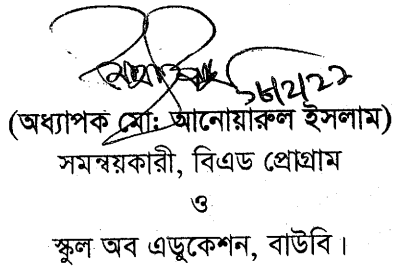 (অধ্যাপক মো: আনোয়ারুল ইসলাম)
সমন্বয়কারী, বিএড প্রোগ্রাম
ও
স্কুল অব এডুকেশন, বাউবি।